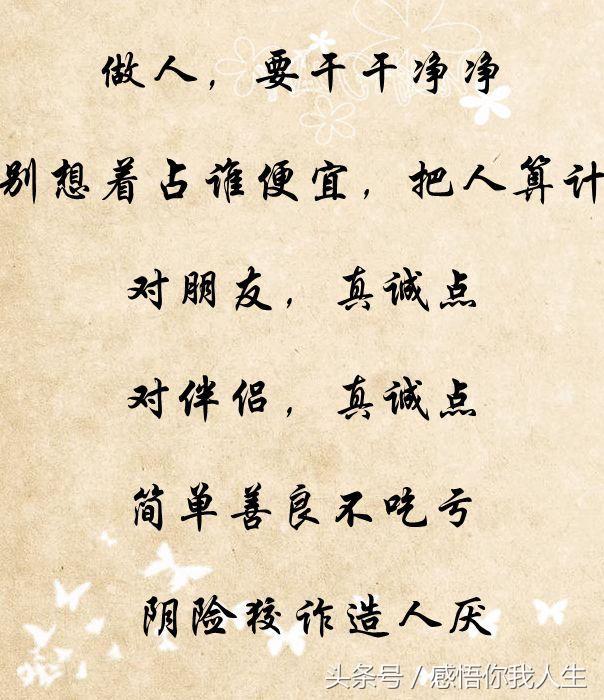 做人，要干干净净
别想着占谁便宜，把人算计
对朋友，真诚点
对伴侣，真诚点
简单善良不吃亏
阴险狡诈造人厌
头条号 / 感悟你我人生